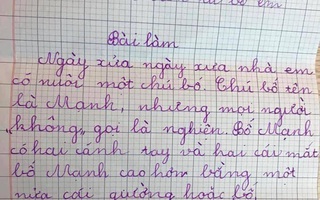 Bài làm
Ngày xửa ngày xưa nhà em
có nuôi một chú bó. Chú bố tên
là Mạnh, nhưng mọi người
không gọi là nghiên. Bố Mạnh
có hai cánh tay và hai cái mắt
bố Mạnh cao hơn bằng một
nửa cái giường hoặc bố